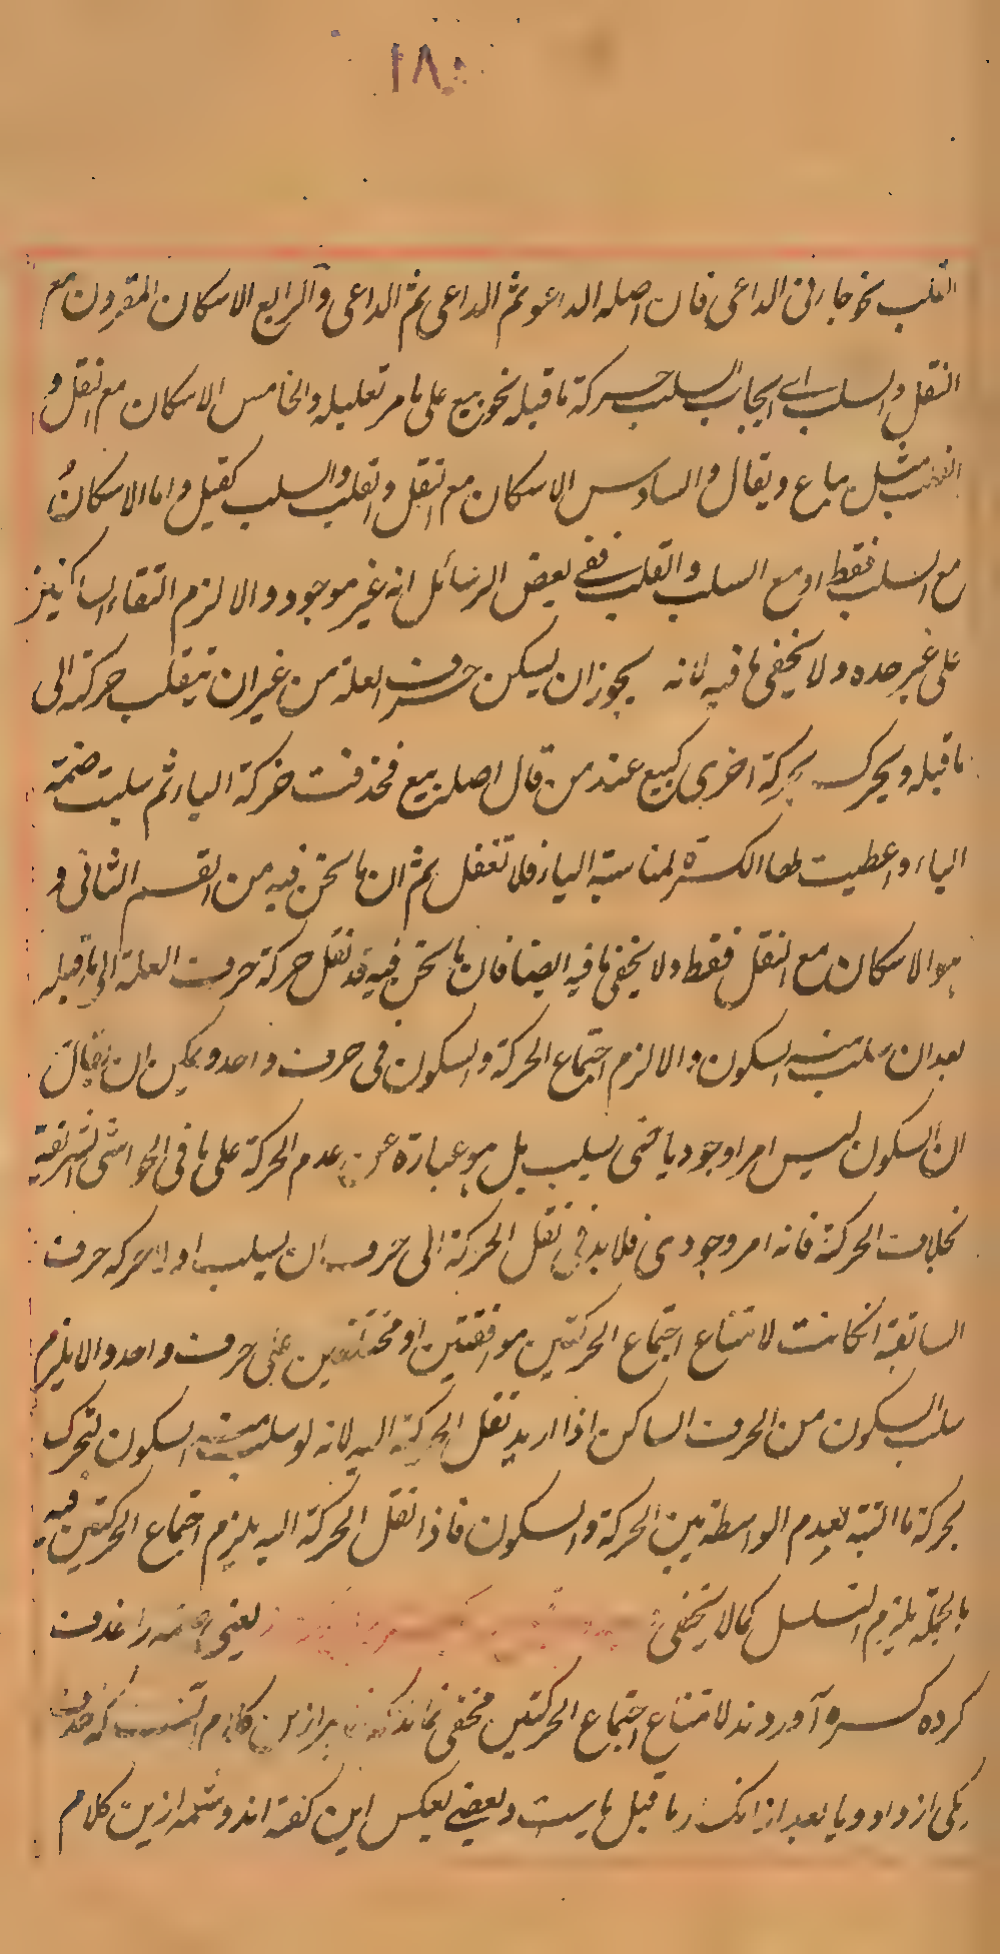 ١٨٠
القلب نحو جاءنی الداعی فان اصله الداعو ثم الداعی ثم الداعی والرابع الاسکان المقرون مع
النقل والسلب اے ایجاب السلب حرکة ماقبله نحو بیع علی ما مر تعلیله والخامس الاسکان مع النقل و
القلب مثل یباع ویقال والسادس الاسکان مع النقل والقلب والسلب کقیل واما الاسکان
مع السلب فقط او مع السلب والقلب ففے بعض الرسائل انه غیر موجود والا لزم التقاء الساکنین
علی غیر حده ولا یخفی ما فیه لانه یجوز ان یسکن حرف العلة من غیر ان ینقلب حرکته الی
ماقبله ویحرک بحرکة اخری کبیع عند من قال اصله بیع فحذفت حرکة الیاء ثم سلبت ضمة
الیاء واعطیت لها الکسرة لمناسبة الیاء فلا تغفل ثم ان ما نحن فیه من القسم الثانی و
هو الاسکان مع النقل فقط ولا یخفی ما فیه ایضا فان ما نحن فیه قد نقل حرکة حرف العلة الی ماقبله
بعد ان سلبت منه السکون والا لزم اجتماع الحرکة والسکون فی حرف واحد ویمکن ان یقال
ان السکون لیس امرا وجودیا حتی یسلب بل هو عبارة عن عدم الحرکة علی ما فی الحواشی الشریفة
بخلاف الحرکة فانه امر وجودی فلا بد فی نقل الحرکة الی حرف ان یسلب اولا حرکه حرف
السابقة انکانت لامتناع اجتماع الحرکتین موافقتین او مختلفتین علی حرف واحد والا یلزم
سلب السکون من الحرف الساکن اذا ارید نقل الحرکة الیه لانه لو سلبت منه السکون لتحرک
بحرکة ما البتة لعدم الواسطة بین الحرکة والسکون فاذا نقل الحرکة الیه یلزم اجتماع الحرکتین فیه
بالجملة یلزم التسلسل کما لا یخفی یعنی ضمه را حذف
کرده کسره آوردند لامتناع اجتماع الحرکتین مخفی نماند که ازین کلام آنست که حذف
یکی از واو و یا بعد از انکسار ماقبل یاست وبعضے بعکس این گفته اند وشمه ازین کلام